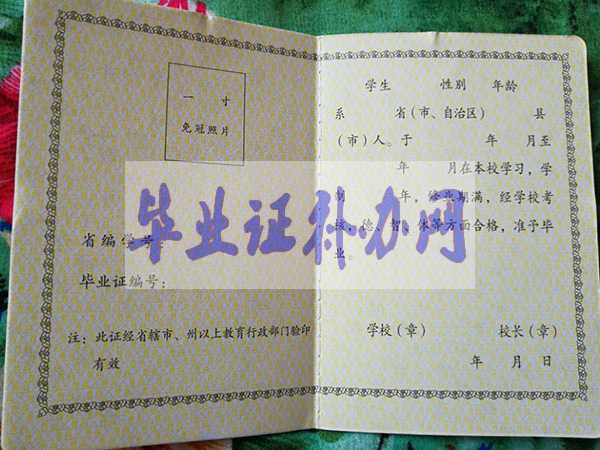 一 寸
免冠照片
省编学号：
毕业证编号：
注：此证经省辖市、州以上教育行政部门验印
有效
学生 性别 年龄
系 省（市、自治区） 县
（市）人。于 年 月至
年 月在本校学习，学
制 年，修业期满，经学校考
核，德、智、体等方面合格，准予毕
业。
学校（章） 校长（章）
年 月 日
毕业证补办网